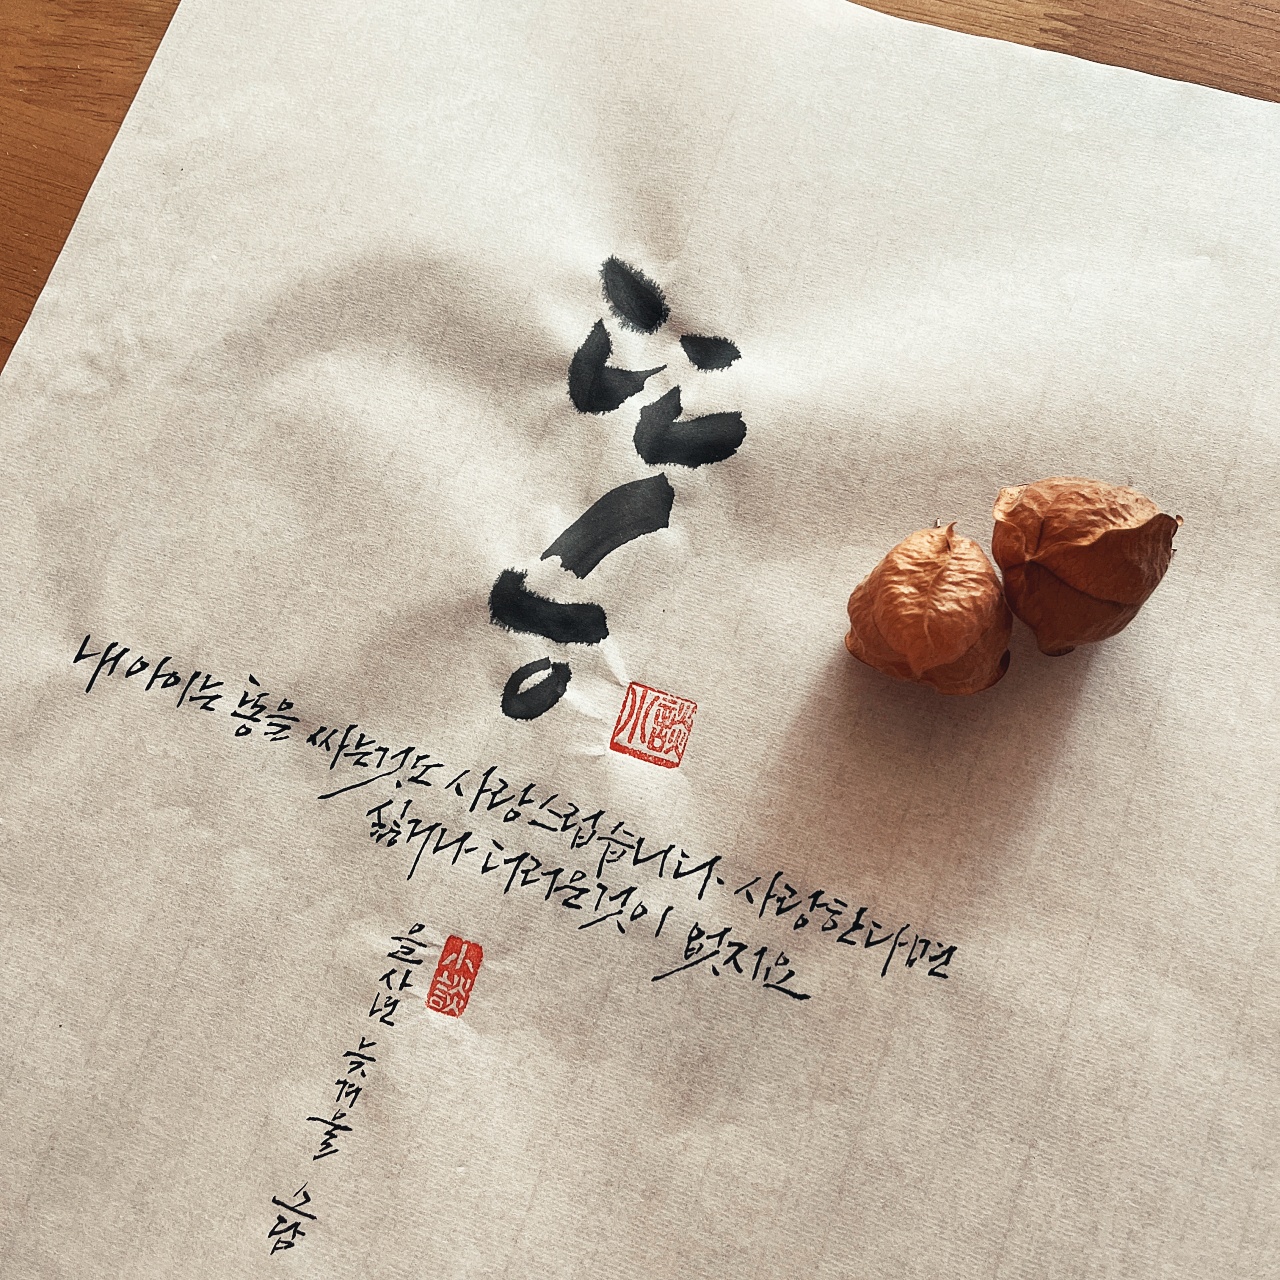 똥
小談
내 아이는 똥을 싸는것도 사랑스럽습니다. 사랑한다면
싫거나 더러운것이 없지요
을사년 늦겨울 소담
小談